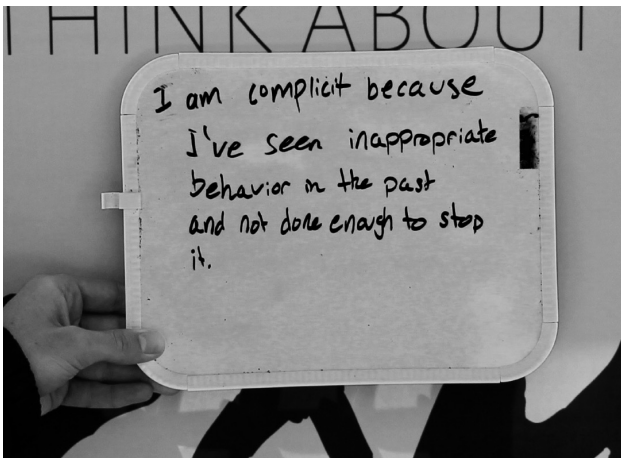 THINK ABOUT
I am complicit because
I've seen inappropriate
behavior in the past
and not done enough to stop
it.